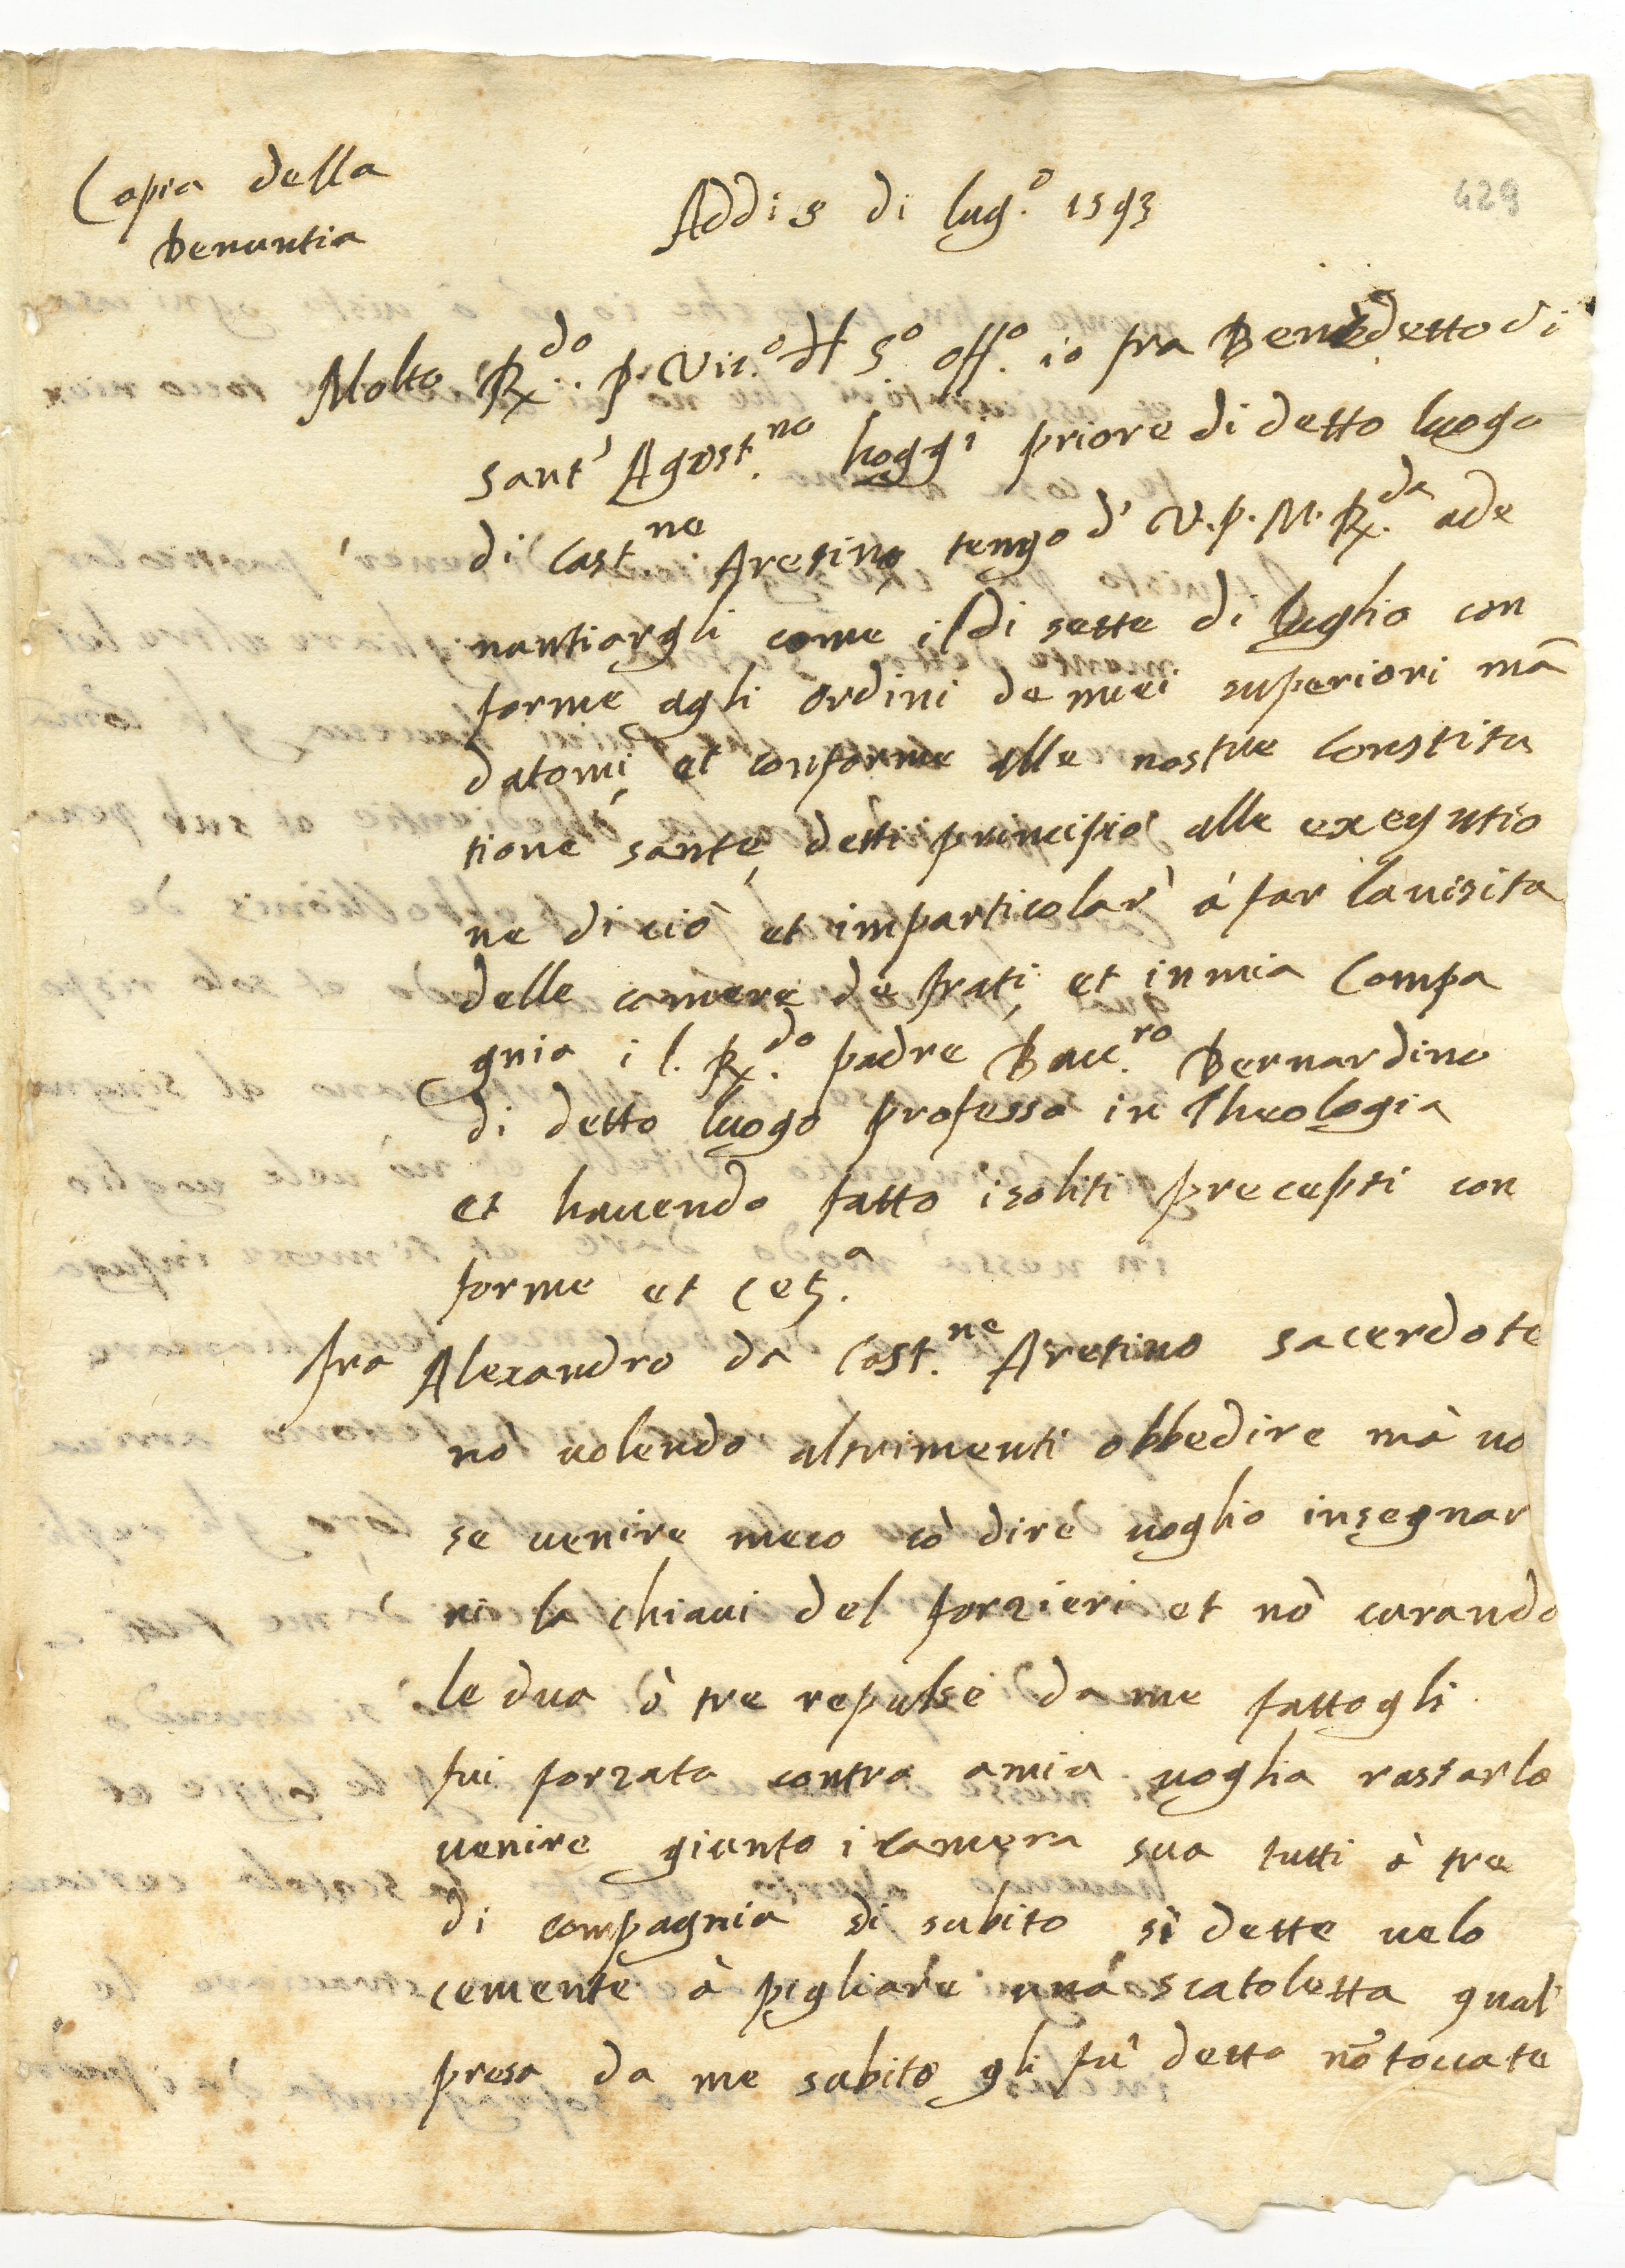 Copia della
Denuntia
Addi 8 di lug.o 1593
429
Molto R.do p. Vic.o dl S.o off.o io fra Benedetto di
sant' Agost.no hoggi priore di detto luogo
di Cast.ne Aretino tengo d' V.p.M.R.da ade
nuntiargli come il di sette di luglio con
forme agli ordini de miei superiori mā
datomi et conforme alle nostre Constitu
tione sante detti principio alle exegutio
ne di ciò et imparticolar' à far lavisita
delle camere de frati et in mia Compa
gnia il. R.do padre Bacc.ro Bernardino
di detto luogo professo in Theologia
et havendo fatto isoliti precepti con
forme et cet.a
fra Alexandro da Cast.ne Aretino sacerdote
nō volendo altrimenti obbedire mà vo
se venire meco cō dire voglio insegnar
vi la chiavi del forzieri et nō curando
le dua ò tre repulse da me fattogli
fui forzato contra amia voglia rastarlo
venire giunto i camera sua tutti à tre
di compagnia di subito si dette velo
cemente à pigliare una scatoletta qual'
presa da me subito gli fu detto nō toccate